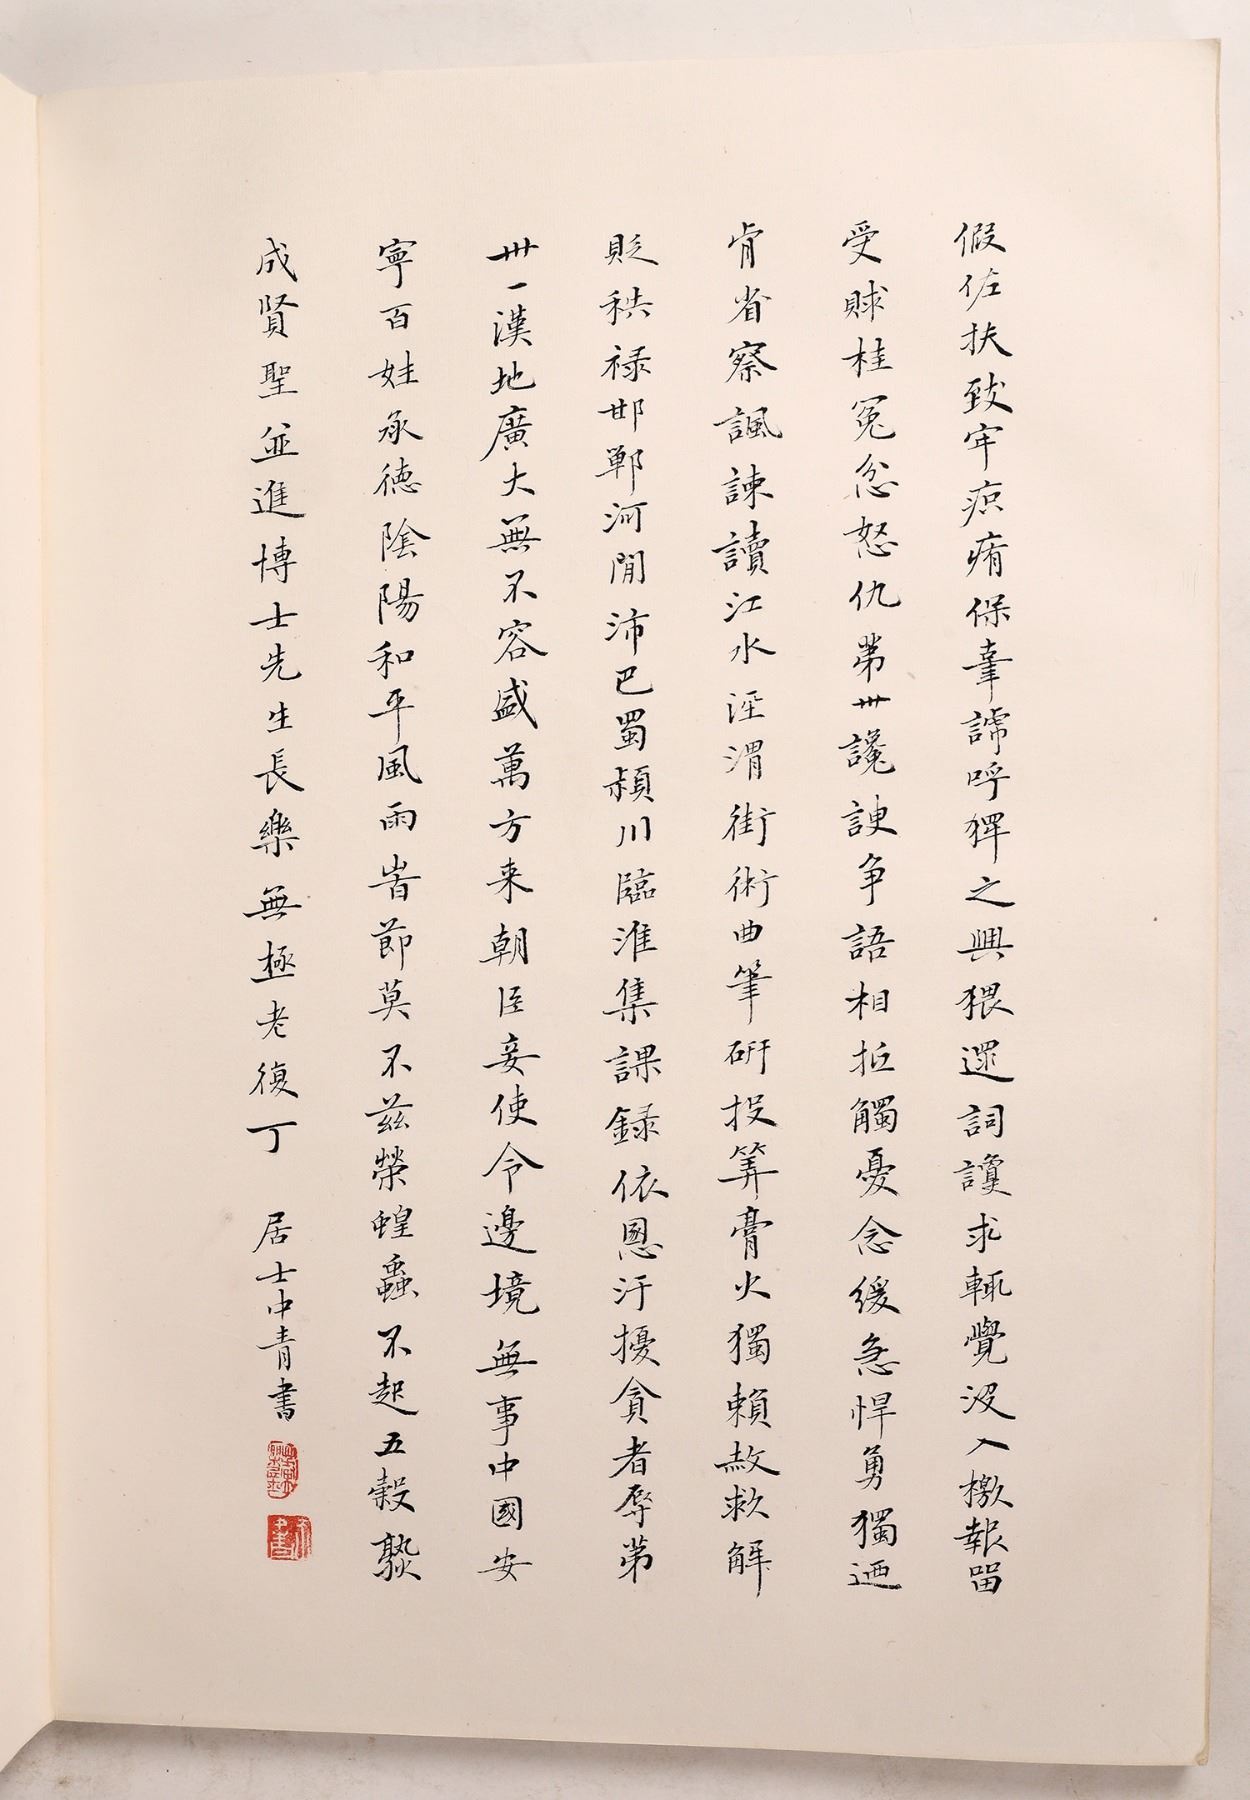 假佐扶致牢疻痏保辜謕呼猂之興猥逻詞讂求輒覺没入檄報留
受賕枉冤忿怒仇第卅讒諛争語相抵觸憂念缓急悍勇獨迺
肯省察諷諫讀江水涇渭街術曲筆研投筭膏火獨賴赦救解
貶秩禄邯鄲河間沛巴蜀潁川臨淮集課録依恩汙擾貪者辱第
卅一漢地廣大無不容盛萬方来朝臣妾使令邊境無事中國安
寧百姓承德陰陽和平風雨時節莫不兹榮蝗蟲不起五穀孰
成賢聖並進博士先生長樂無極老復丁 居士中青書